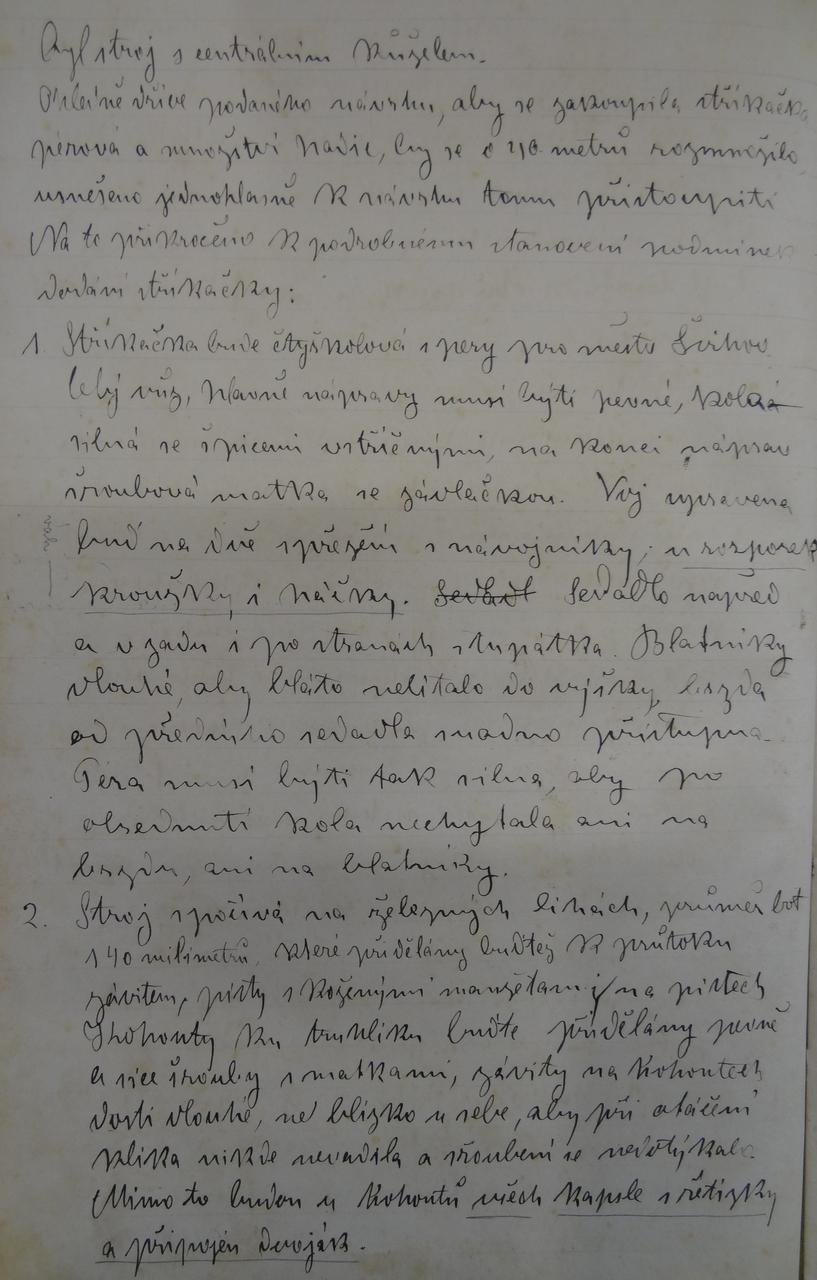 byl stroj s centrálním kůželem.
Ohledně dříve podaného návrhu, aby se zakoupila stříkačka
pérová a množství hadic, by se o 40 metrů rozmnožilo
usnešeno jednohlasně k návrhu tomu přistoupiti
Na to přikročeno k podrobnému stanovení podmínek
dodání stříkačky:
1. Stříkačka bude čtyřkolová s pery pro město Švihov
celý vůz, hlavně nápravy musí býti pevné, kola
silná se špicemi vstřičenými, na konci náprav
šroubová matka se závlačkou. Voj upravena
buď na dvě spřežení s návojníky, u rozporek
kroužky i háčky. Sedadlo napřed
a vzadu i po stranách stupátka. Blatníky
dlouhé, aby bláto nelítalo do výšky, brzda
od předního sedadla snadno přístupna.
Péra musí býjti tak silna, aby po
obsednutí kola nechytala ani na
brzdu, ani na blatníky.
2. Stroj spočívá na železných lihách, průměr bot
140 milimetrů, které přidělány buďtež k průtoku
závitem, pisty s koženými manžetami na pistech
Kohouty ku truhlíku buďte přidělány pevně
a sice šrouby s matkami, závity na kohoutech
dosti dlouhé, ne blízko u sebe, aby při otáčení
klika nikde nevadila a šroubení se nedotýkala.
Mimo to budou u kohoutů všech kapsle s řetízky
a připojen dvoják.